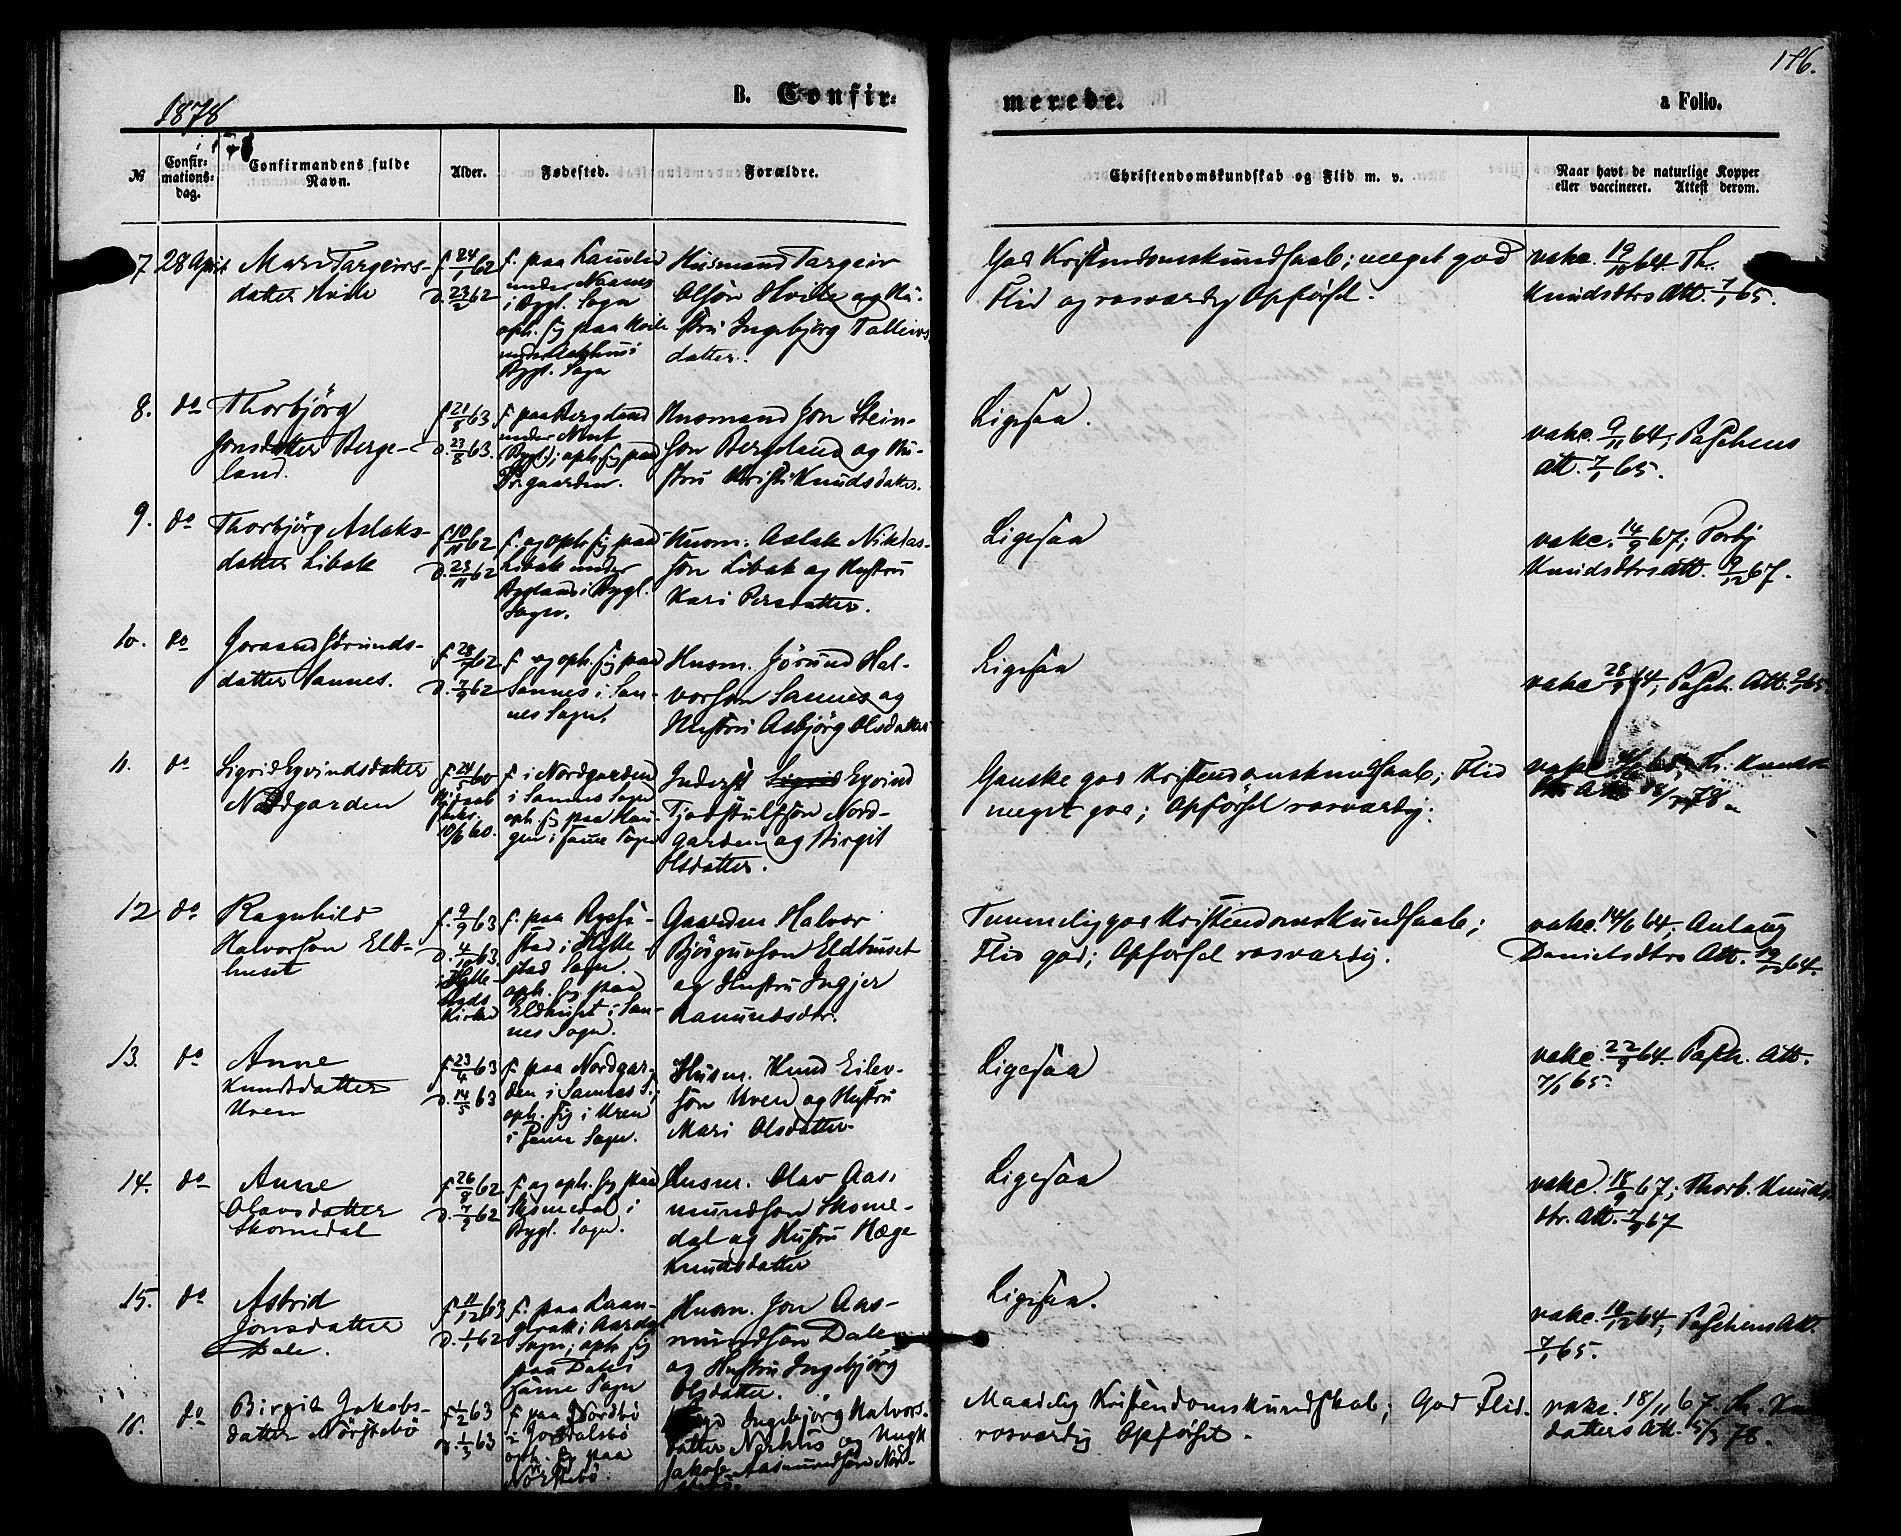 176.
1878
B. Confir-
merede.
a Folio.
№
Confir-
mations-
dag.
Confirmandens fulde
Navn.
Alder.
Fødested.
Forældre.
Christendomskundskab og Flid m. v.
Naar havt de naturlige Kopper
eller vaccineret. Attest derom.
7 28 April
Mari Targeirs-
datter Hvile
f. 24/1 62
d. 23/2 62
under Naanes
i Bygl. Sogn
oph. sig paa Hvile
Bygl. Sogn
Husmand Targeir
Olsøn Hvile og Hu-
stru Ingebjørg Talleivs
datter.
God Kristendomskundskab; meget god
Flid og rosværdig Opførsel.
vakc. 19/10 64. Th.
Knudsdtrs Att. 7/1 65.
8. do
Thorbjörg
Jonsdatter Berge-
land.
f. 21/5 63
d. 23/8 63.
f. paa Bergeland
under
Bygl.; oph. sig paa
Pr.gaarden.
Husmand Jon Stein-
søn Bergeland og Hu-
stru Kristi Knudsdatter.
Ligesaa.
vakc. 9/11 64; Paschens
Att. 7/1 65.
9. do
Thorbjörg Aslaks-
datter Libak
f. 10/11 62
d. 23/11 62
f. og oph. sig paa
Libak under
Bygland i Bygl.
Sogn.
Husm. Aslak Niklas-
søn Libak og Hustru
Kari Persdatter.
Ligesaa
vakc. 14/9 67; Torbj
Knudsdtrs Att. 9/12 67.
10. do
Joraand Jörunds-
datter Sannes.
f. 28/7 62
d. 7/9 62
f. og oph. sig paa
Sannes i San-
nes Sogn.
Husm. Jörund Hal-
vorsøn Sannes og
Hustru Asbjørg Olsdatter
Ligesaa
vakc 28/9 64; Pasch. Att. 65
11. do
Sigrid Eyvindsdatter
Nordgarden
f. 24/5 60
10/6 60.
f. i Nordgarden
i Sannes Sogn
oph. sig paa Hau-
gen i samme Sogn
Inderst Sigrid Eyvind
Tjostulfsøn Nord-
garden og Birgit
Olsdatter.
Ganske god Kristendomskundskab; Flid
meget god; Opførsel rosværdig.
vakc 65; Th. Knuds
78.
12 do
Ragnhild
Halvorsøn Eld-
huset
f. 9/9 63
d. 4/10 63
i Hylle-
stads
Kirke
f. paa Ryssø-
stad i Hylle
stad Sogn.
oph. sig paa
Eldhuset i San-
nes Sogn.
Gaardm Halvor
Björgulvsøn Eldhuset
og Hustru Ingjer
Aamundsdtr.
Temmelig god Kristendomskundskab;
Flid god; Opførsel rosværdig.
vakc. 14/6 64; Aulaug
Danielsdtrs Att. 19/12 64.
13. do
Anne
Knudsdatter
Uren
f. 23/4 63
d. 14/5 63
f. paa Nordgar-
den i Sannes S.;
oph. sig i Uren
i samme Sogn.
Husm. Knud Eilev-
søn Uren og Hustru
Mari Olsdatter
Ligesaa
vakc. 22/9 64. Pasch. Att.
7/1 65.
14. do
Anne
Olavsdatter
Skomedal
f. 26/8 62
d. 7/9 62
f. og oph. sig paa
Skomedal i
Bygl. Sogn.
Husm. Olav Aas-
mundsøn Skome-
dal og Hustru Hæge
Knudsdatter
Ligesaa
vakc. 18/9 67; Thorb. Knuds
dtr. Att. 7/9 67
15. do
Astrid
Jonsdatter
Dale.
f. 11/12 63
d. 1/1 62
f. paa Laan-
gerak i Aardal
Sogn; oph. sig
paa Dale i
samme Sogn
Husm. Jon Aas-
mundsøn Dale
og Hustru Ingebjörg
Olsdatter.
Ligesaa.
vakc. 19/12 64; Paschens Att.
7/1 65.
16. do
Birgit Jakobs-
datter Nörstebö
f. 1/2 63
d. 1/3 63
f. paa Nordbö
oph. sig paa
Nörstebö.
Ingebjörg Halvors-
datter Nerhus og Ungk
Jakob Aasmundsøn Nord-
Maadelig Kristendomskundskab; God Flid.
rosværdig Opførsel.
vakc. 18/11 67. Th. Knu
datters Att. 15/3 78.